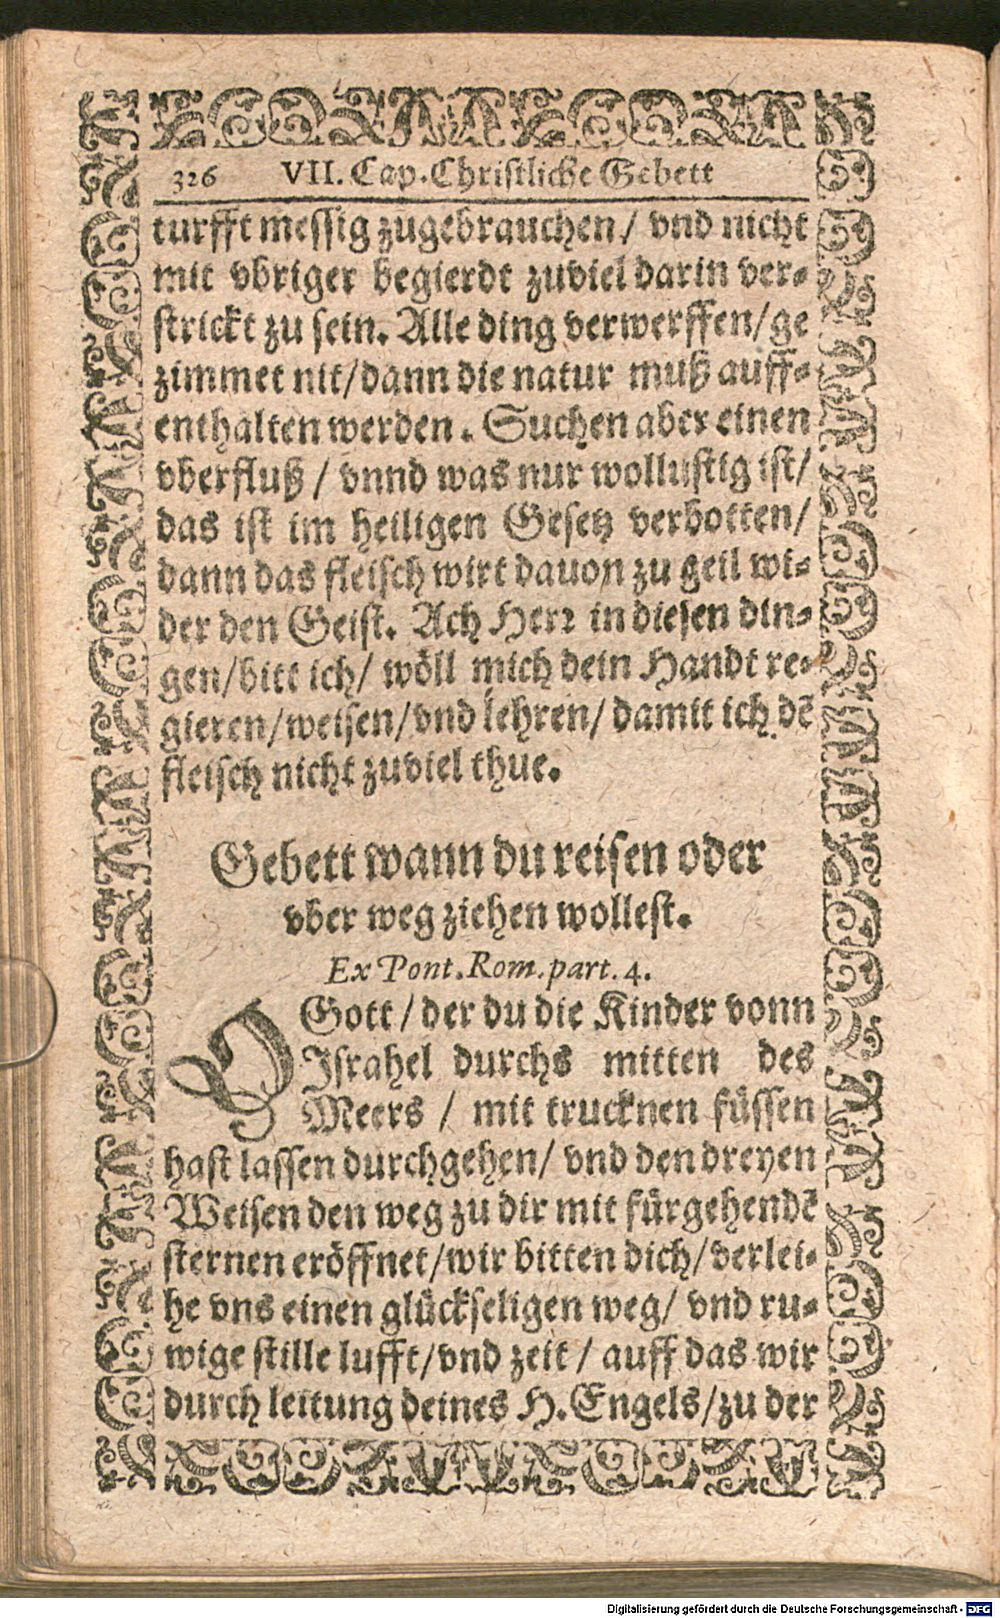 326 VII. Cap. Christliche Gebett
turfft messig zugebrauchen / vnd nicht
mit vbriger begierdt zuviel darin ver-
strickt zu sein. Alle ding verwerffen/ge
zimmet nit/dann die natur muß auff-
enthalten werden. Suchen aber einen
vberfluß / vnnd was nur wollustig ist/
das ist im heiligen Gesetz verbotten/
dann das fleisch wirt dauon zu geil wi-
der den Geist. Ach Herr in diesen din-
gen/bitt ich/ wöll mich dein Handt re-
gieren/weisen/vnd lehren/ damit ich dẽ
fleisch nicht zuviel thue.
Gebett wann du reisen oder
vber weg ziehen wollest.
Ex Pont. Rom. part. 4.
O Gott / der du die Kinder vonn
Israhel durchs mitten des
Meers / mit trucknen füssen
hast lassen durchgehen/ vnd den dreyen
Weisen den weg zu dir mit fürgehendẽ
sternen eröffnet/wir bitten dich/verlei-
he vns einen glückseligen weg/ vnd ru-
wige stille lufft/vnd zeit / auff das wir
durch leitung deines H. Engels/zu der
Digitalisierung gefördert durch die Deutsche Forschungsgemeinschaft - DFG